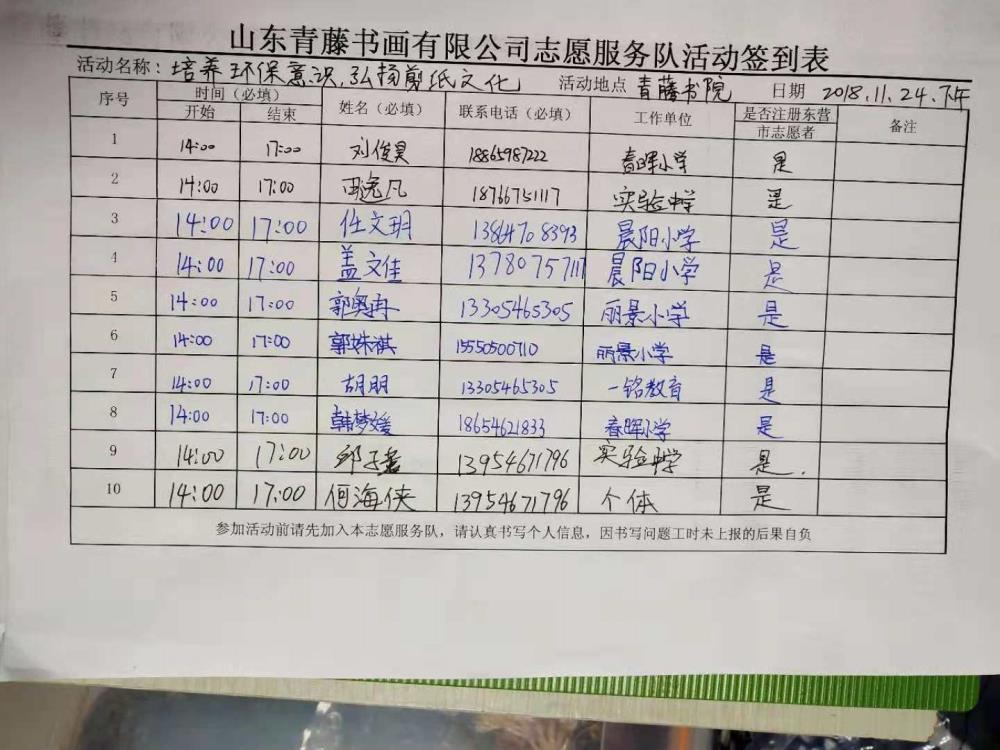 山东青藤书画有限公司志愿服务队活动签到表
活动名称：培养环保意识，弘扬剪纸文化 活动地点 青藤书院 日期 2018.11.24.下午
序号 时间（必填） 姓名（必填） 联系电话（必填） 工作单位 是否注册东营市志愿者 备注
开始 结束
1 14:00 17:00 刘俊昊 18865987222 春晖小学 是
2 14:00 17:00 逸凡 18766751117 实验中学 是
3 14:00 17:00 任文玥 13864708393 晨阳小学 是
4 14:00 17:00 盖文佳 13780757117 晨阳小学 是
5 14:00 17:00 郭奥冉 13305465305 丽景小学 是
6 14:00 17:00 郭姝祺 15550500710 丽景小学 是
7 14:00 17:00 胡朋 13305465305 一铭教育 是
8 14:00 17:00 韩梦媛 18654621833 春晖小学 是
9 14:00 17:00 邱子 13954671796 实验中学 是.
10 14:00 17:00 何海侠 13954671796 个体 是
参加活动前请先加入本志愿服务队，请认真书写个人信息，因书写问题工时未上报的后果自负